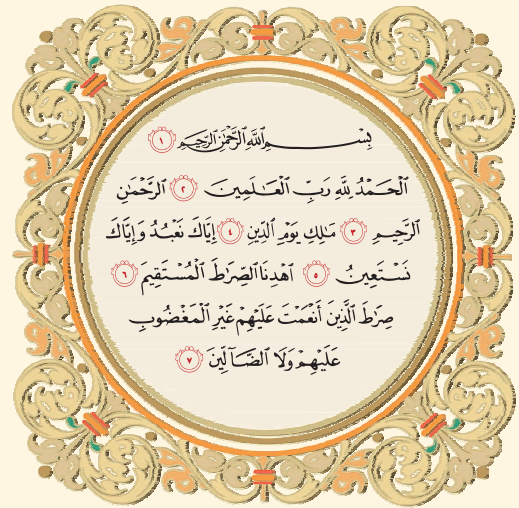 بِسْمِ اللَّهِ الرَّحْمَٰنِ الرَّحِيمِ ١
الْحَمْدُ لِلَّهِ رَبِّ الْعَـٰلَمِينَ ٢ الرَّحْمَٰنِ
الرَّحِيمِ ٣ مَـٰلِكِ يَوْمِ الدِّينِ ٤ إِيَّاكَ نَعْبُدُ وَإِيَّاكَ
نَسْتَعِينُ ٥ اهْدِنَا الصِّرَٰطَ الْمُسْتَقِيمَ ٦
صِرَٰطَ الَّذِينَ أَنْعَمْتَ عَلَيْهِمْ غَيْرِ الْمَغْضُوبِ
عَلَيْهِمْ وَلَا الضَّآلِّينَ ٧